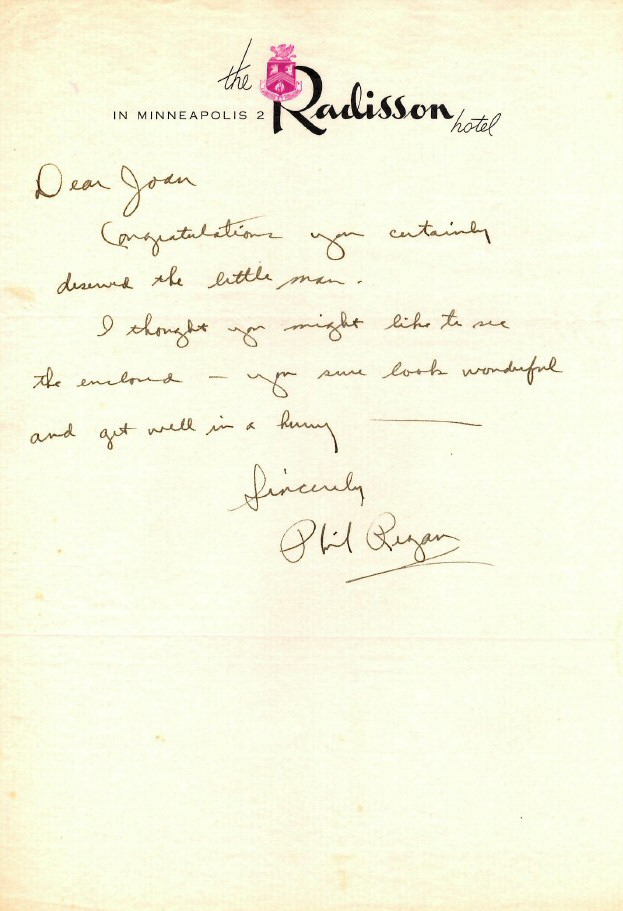 the Radisson hotel
IN MINNEAPOLIS 2
Dear Joan
Congratulations you certainly
deserved the little man.
I thought you might like to see
the enclosed – you sure look wonderful
and get well in a hurry
Sincerely
Phil Regan